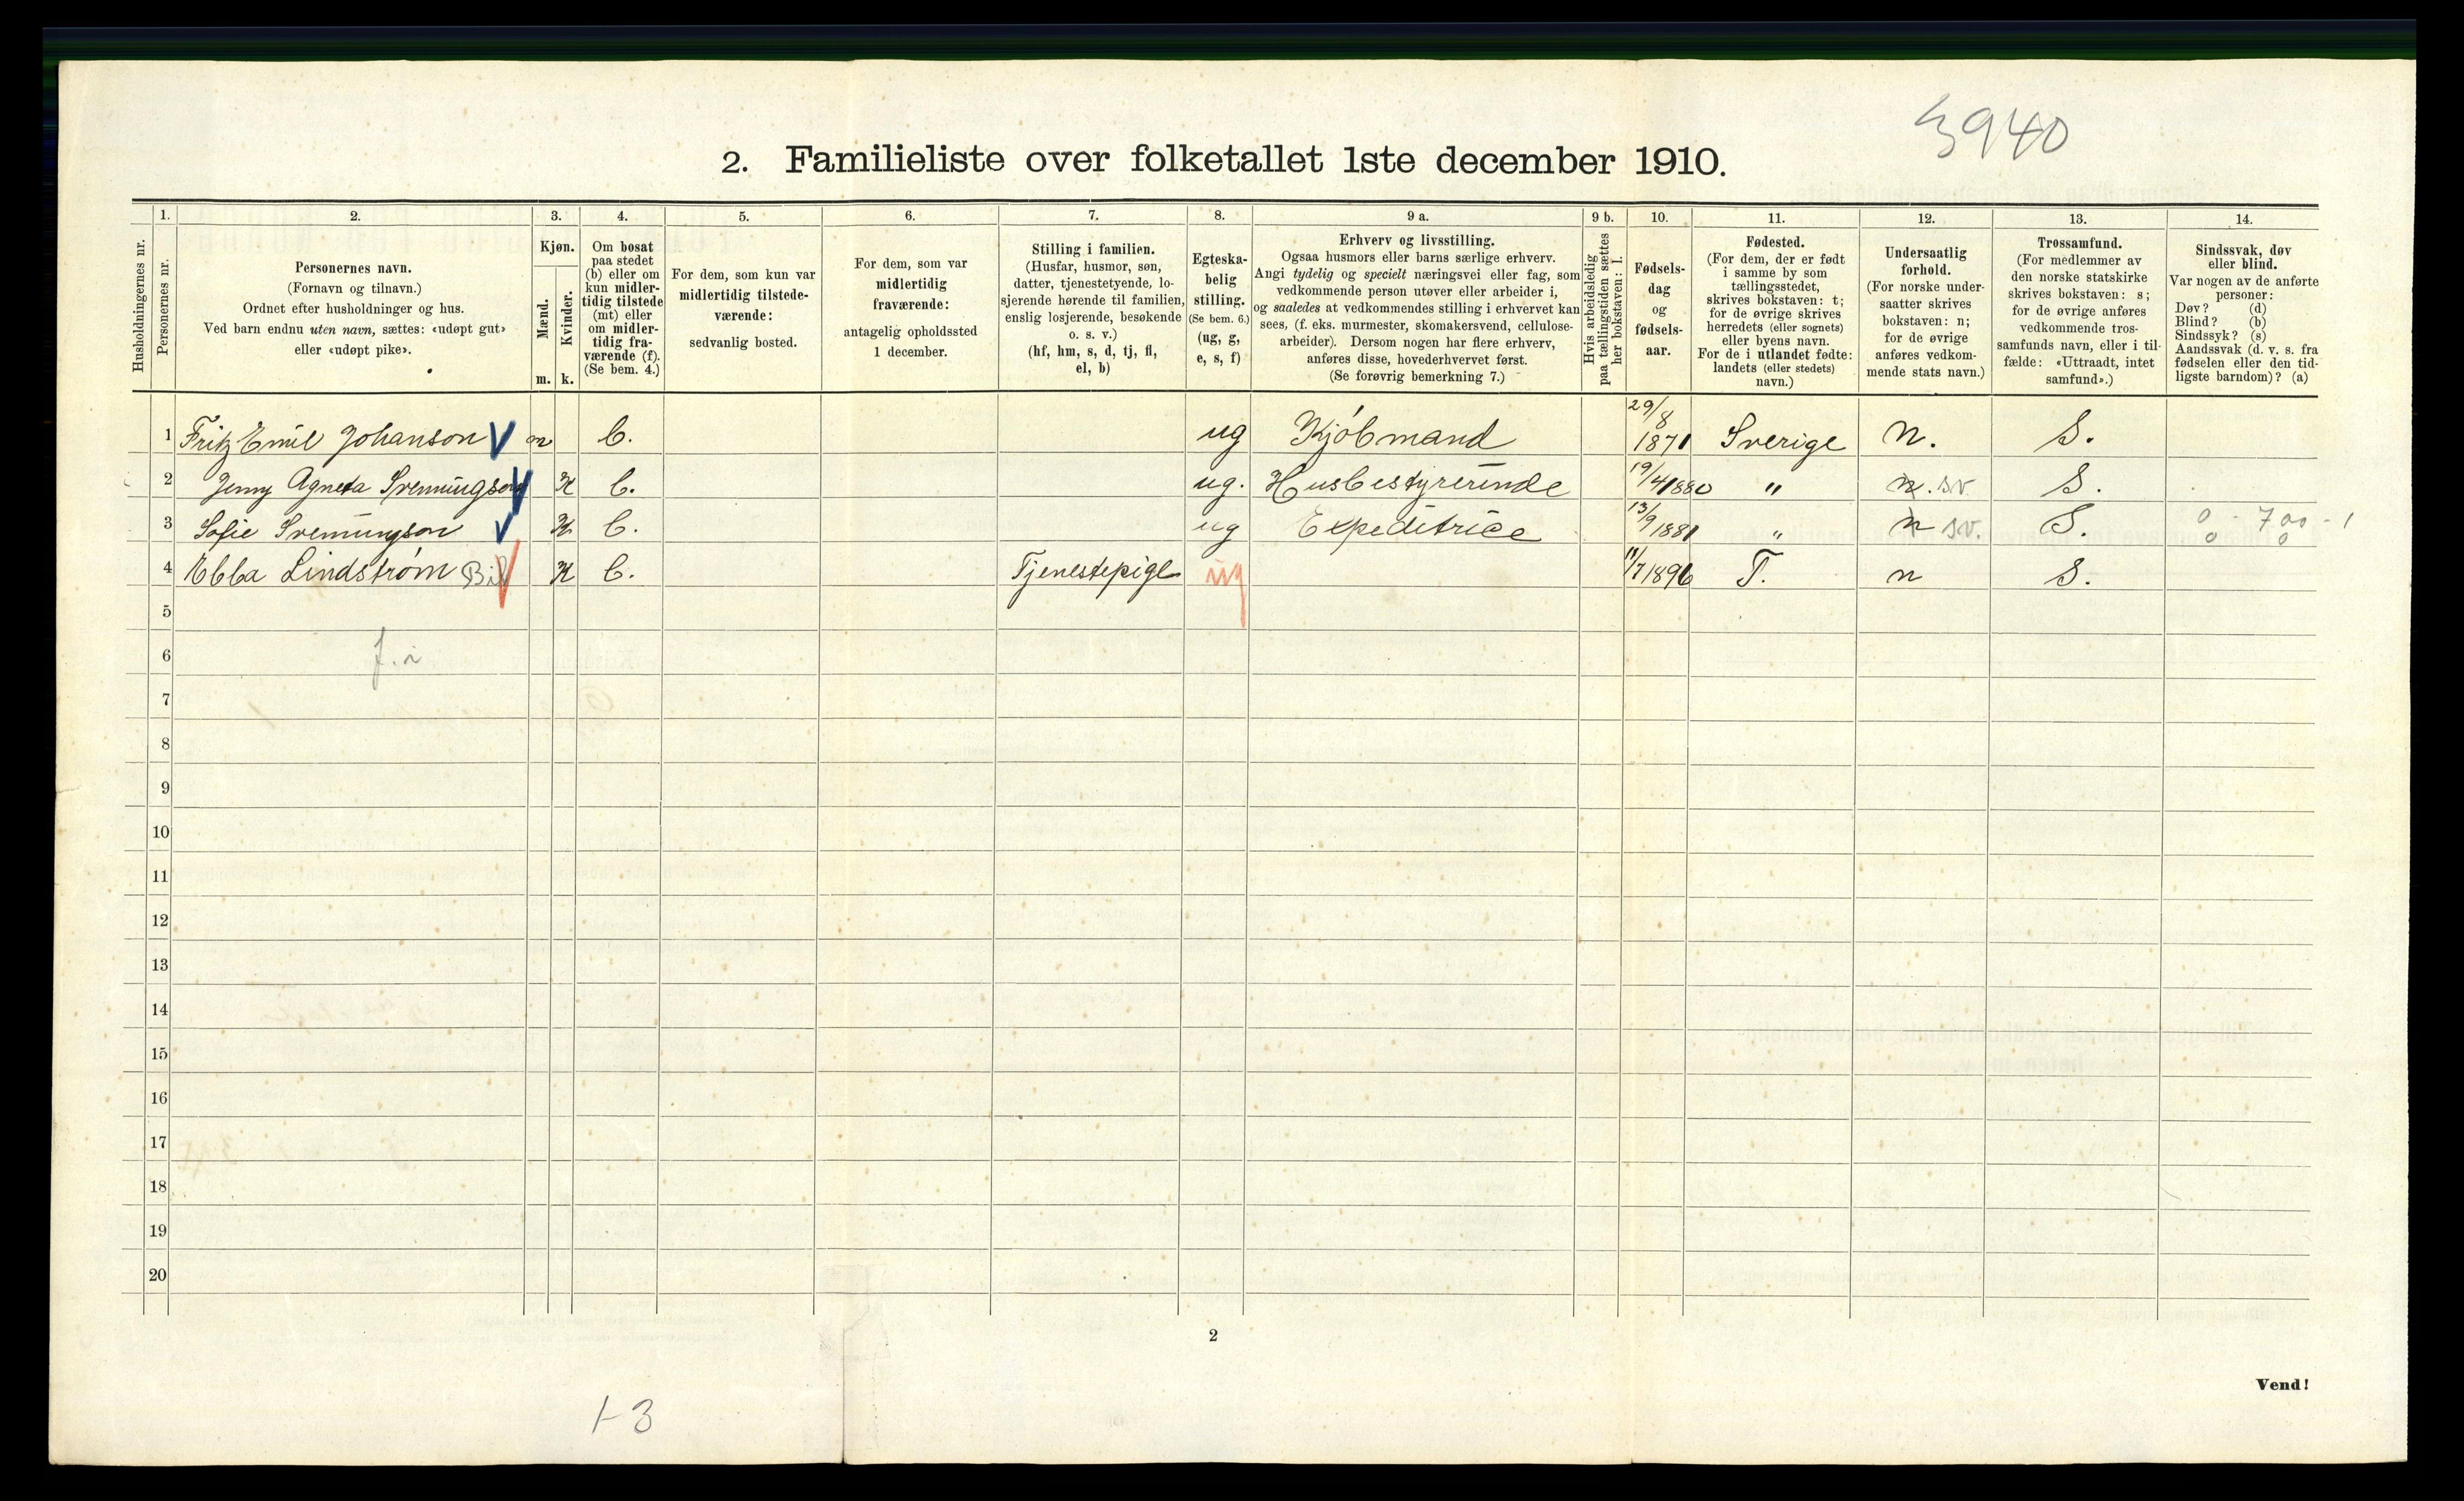 3940
2. Familieliste over folketallet 1ste december 1910.
Husholdningernes nr.
1.
Personernes nr.
2.
Personernes navn.
(Fornavn og tilnavn.)
Ordnet efter husholdninger og hus.
Ved barn endnu uten navn, sættes: «udøpt gut»
eller «udøpt pike».
3.
Kjøn.
Mænd.
Kvinder.
m. k.
4.
Om bosat
paa stedet
(b) eller om
kun midler-
tidig tilstede
(mt) eller
om midler-
tidig fra-
værende (f).
(Se bem. 4.)
5.
For dem, som kun var
midlertidig tilstede-
værende:
sedvanlig bosted.
6.
For dem, som var
midlertidig
fraværende:
antagelig opholdssted
1 december.
7.
Stilling i familien.
(Husfar, husmor, søn,
datter, tjenestetyende, lo-
sjerende hørende til familien,
enslig losjerende, besøkende
o. s. v.)
(hf, hm, s, d, tj, fl,
el, b)
8.
Egteska-
belig
stilling.
(Se bem. 6.)
(ug, g,
e, s, f)
9 a.
Erhverv og livsstilling.
Ogsaa husmors eller barns særlige erhverv.
Angi tydelig og specielt næringsvei eller fag, som
vedkommende person utøver eller arbeider i,
og saaledes at vedkommendes stilling i erhvervet kan
sees, (f. eks. murmester, skomakersvend, cellulose-
arbeider). Dersom nogen har flere erhverv,
anføres disse, hovederhvervet først.
(Se forøvrig bemerkning 7.)
9 b.
Hvis arbeidsledig
paa tællingstiden sættes
her bokstaven: l.
10.
Fødsels-
dag
og
fødsels-
aar.
11.
Fødested.
(For dem, der er født
i samme by som
tællingsstedet,
skrives bokstaven: t;
for de øvrige skrives
herredets (eller sognets)
eller byens navn.
For de i utlandet fødte:
landets (eller stedets)
navn.)
12.
Undersaatlig
forhold.
(For norske under-
saatter skrives
bokstaven: n;
for de øvrige
anføres vedkom-
mende stats navn.)
13.
Trossamfund.
(For medlemmer av
den norske statskirke
skrives bokstaven: s;
for de øvrige anføres
vedkommende tros-
samfunds navn, eller i til-
fælde: «Uttraadt, intet
samfund».)
14.
Sindssvak, døv
eller blind.
Var nogen av de anførte
personer:
Døv? (d)
Blind? (b)
Sindssyk? (s)
Aandssvak (d. v. s. fra
fødselen eller den tid-
ligste barndom)? (a)
1 Fritz Emil Johanson m b. ug Kjöbmand 29/8 1871 Sverige n. S.
2 Jenny Agneta Svenningson K b. ug. Husbestyrerinde 19/4 1880 " n. sv. S.
3 Sofie Svenningson K b. ug Expeditrice 13/9 1881 " n sv. S. 0 - 700 - 1
0 0
4 Ebba Lindstrøm K b. Tjenestepige ug 11/7 1896 T. n S.
5
6 f. i
7
8
9
10
11
12
13
14
15
16
17
18
19
20
2
Vend!
1-3